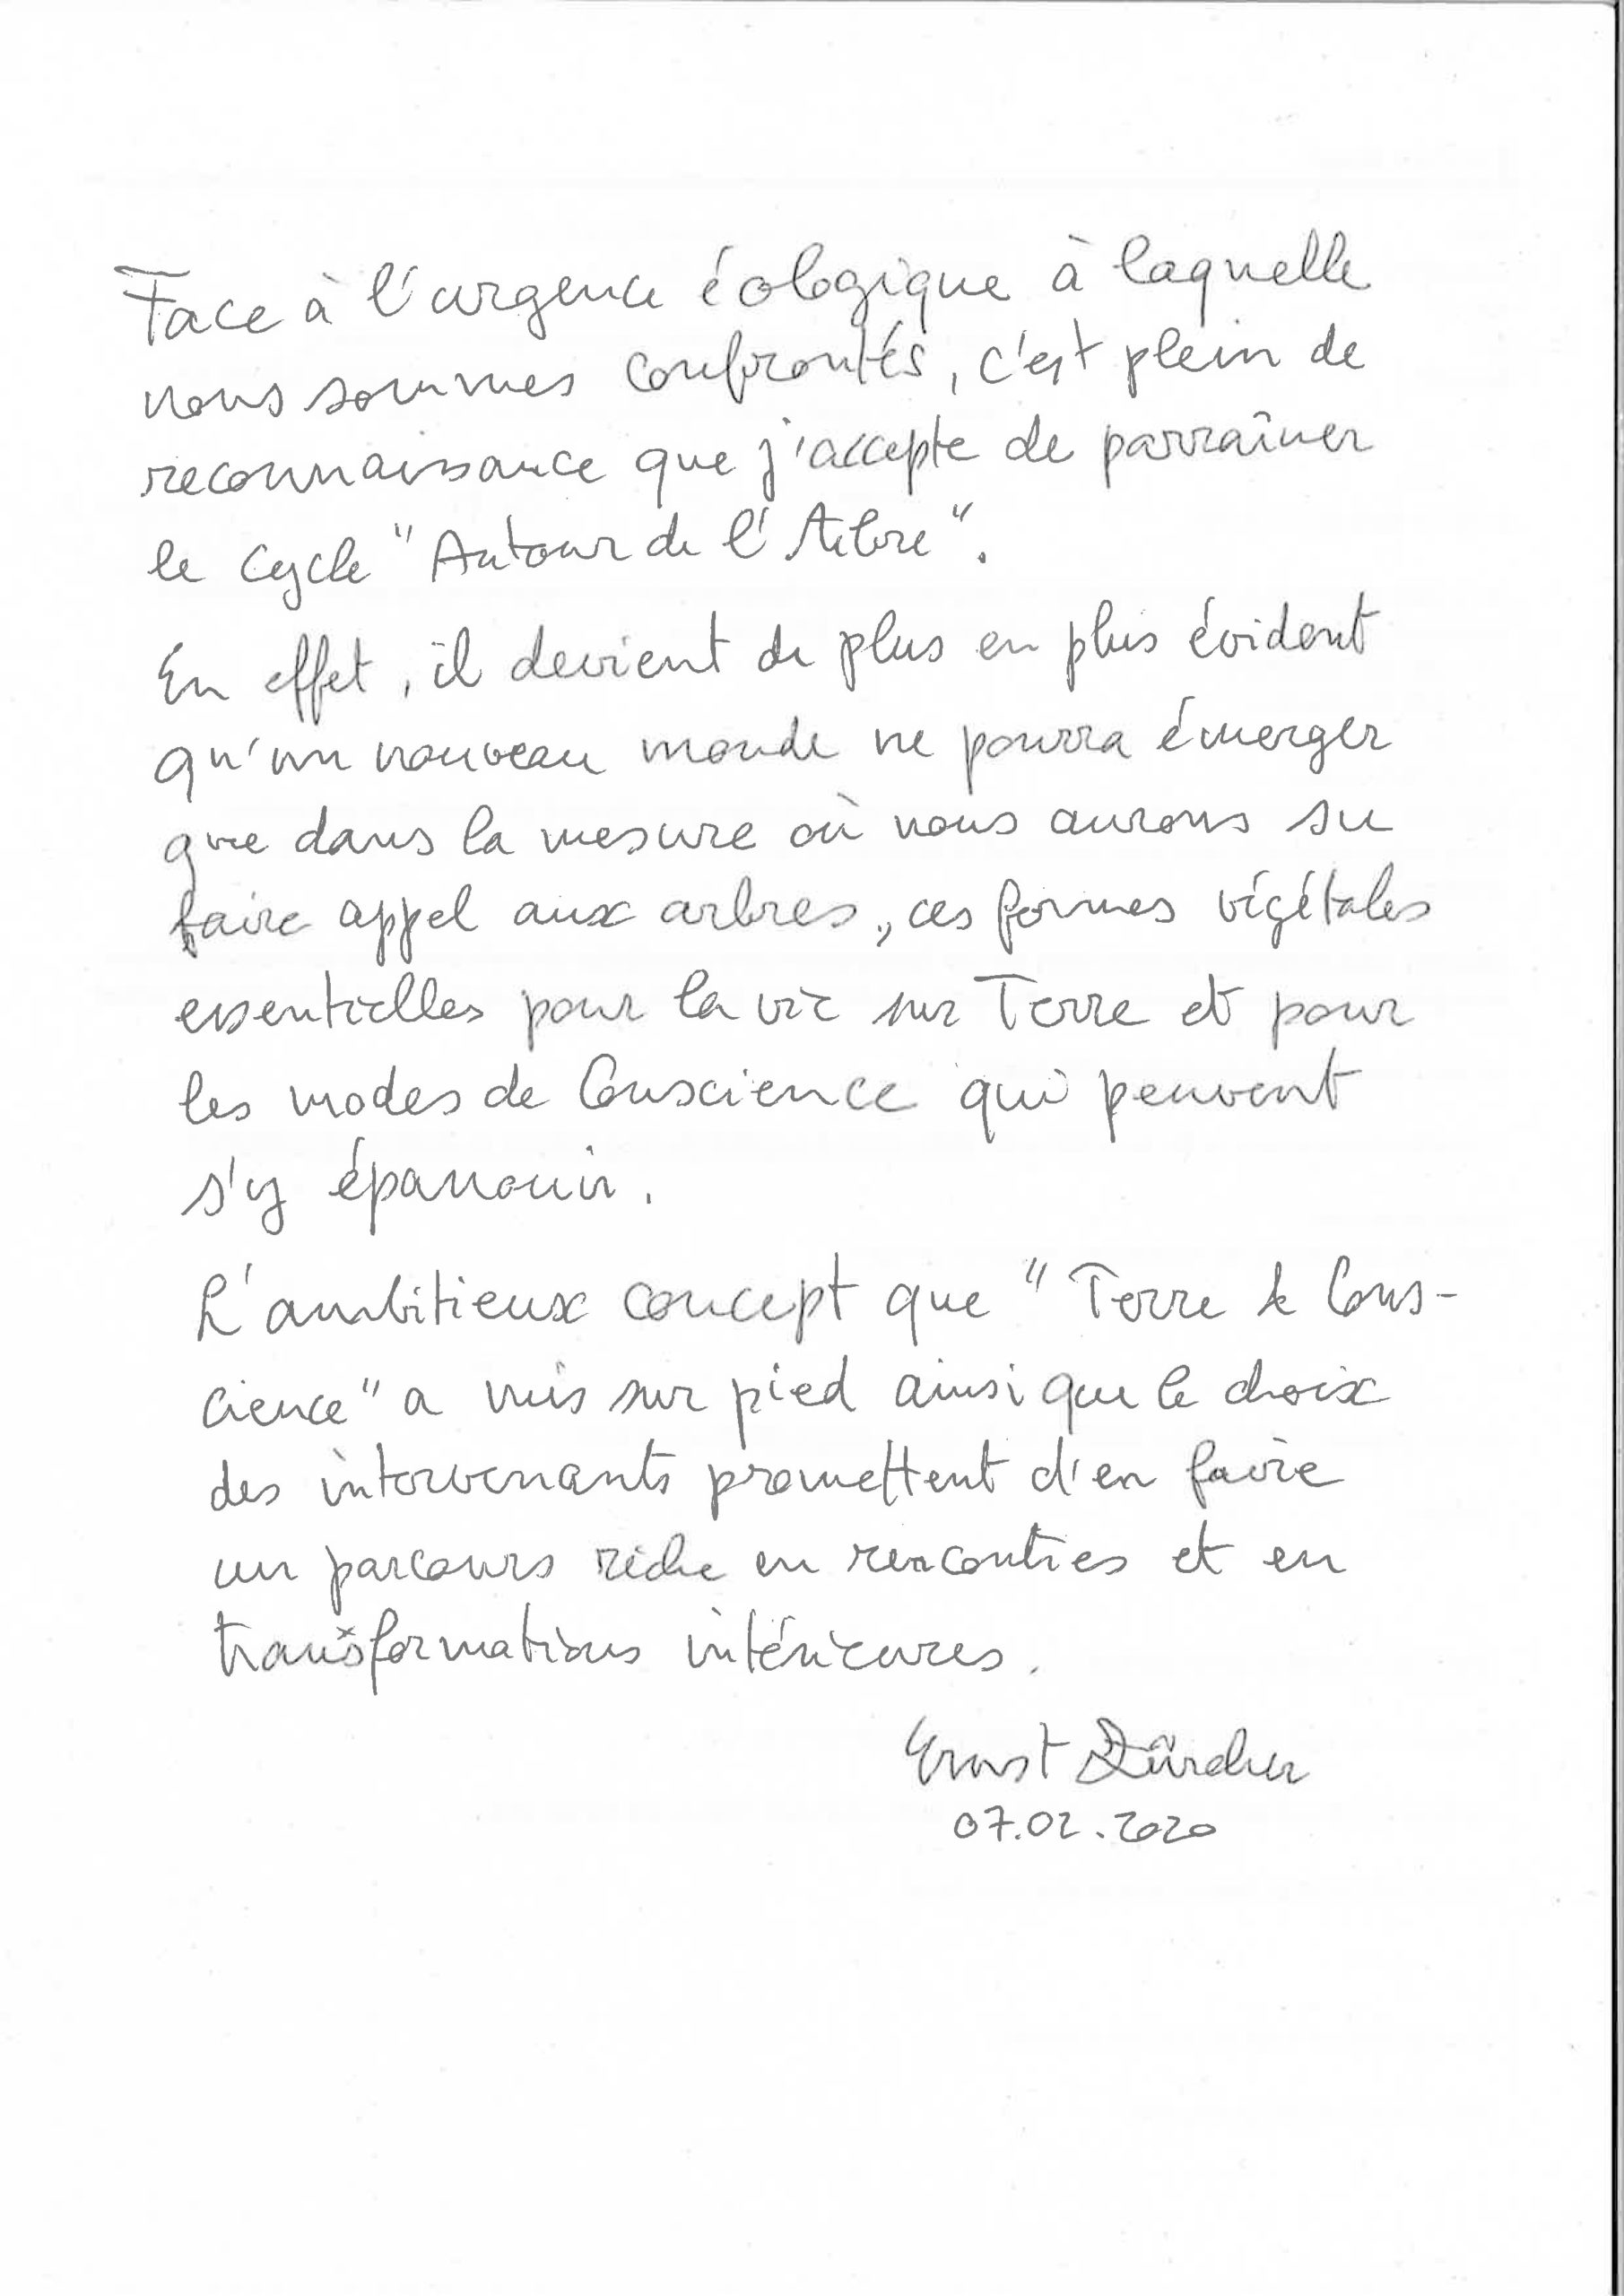 Face à l'urgence éologique à laquelle
nous sommes confrontés, c'est plein de
reconnaissance que j'accepte de parraîner
le cycle "Autour de l'Arbre".
En effet, il devient de plus en plus évident
qu'un nouveau monde ne pourra émerger
que dans la mesure où nous aurons su
faire appel aux arbres, ces formes végétales
essentielles pour la vie sur Terre et pour
les modes de Conscience qui peuvent
s'y épanouir.
L'ambitieux concept que "Terre & Cons-
cience" a mis sur pied ainsi que le choix
des intervenants promettent d'en faire
un parcours riche en rencontres et en
transformations intérieures.
Ernst Zürcher
07.02.2020